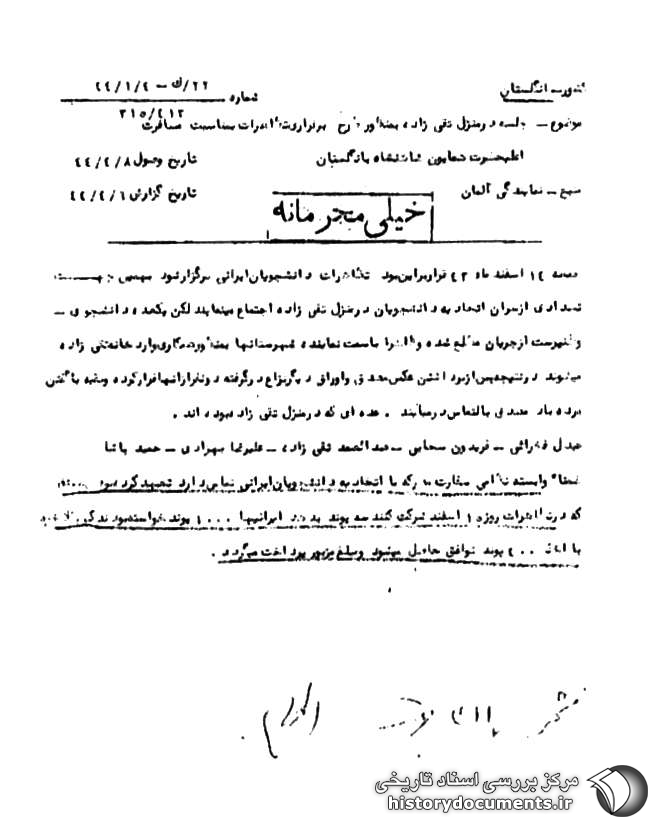 کشور ـ انگلستان
۲۲/ک ـ ۴۴/۱/۴
شماره
۳۱۵/۴۱۲
موضوع ـ جلسه در منزل تقی زاده بمنظور طرح برقراری تظاهرات بمناسبت مسافرت
اعلیحضرت همایون شاهنشاه بانگلستان
تاریخ وصول ۴۴/۲/۸
منبع ـ نمایندگی آلمان
تاریخ گزارش ۴۴/۲/۶
خیلی محرمانه
۱۴ اسفند ماه ۴۳ قرار براین بود تظاهرات دانشجویان ایرانی برگزار شود بهمین جهت
تعدادی از سران اتحادیه دانشجویان در منزل تقی زاده اجتماع مینمایند لکن یکعده دانشجوی
وطنپرست از جریان مطلع شده و ظاهرا باسمت نماینده شهرستانها بمنظور همکاری وارد خانه تقی زاده
میشوند در نتیجه پس از برداشتن عکس مصدق و اوراق دیگر نزاع درگرفته دو نفر از آنها فرار کرده و بقیه با گفتن
مرده باد مصدق بالتماس درمیآیند . عده ای که در منزل تقی زاده بوده اند .
عبدل فخرائی ـ فریدون سحابی ـ عبدالصمد تقی زاده ـ علیرضا مهرادی ـ حمید باشا
ضمنا وابسته نظامی سفارت که با اتحادیه دانشجویان ایرانی تماس دارد تعهد کرده بود
که در تظاهرات روز ۱۰ اسفند شرکت کنند سه پوند بدهد ایرانیها ۱۰۰۰ پوند خواسته بودند که
با ۴۰۰ پوند توافق حاصل میشود و مبلغ مزبور پرداخت میگردد .
مرکز بررسی اسناد تاریخی
historydocuments.ir